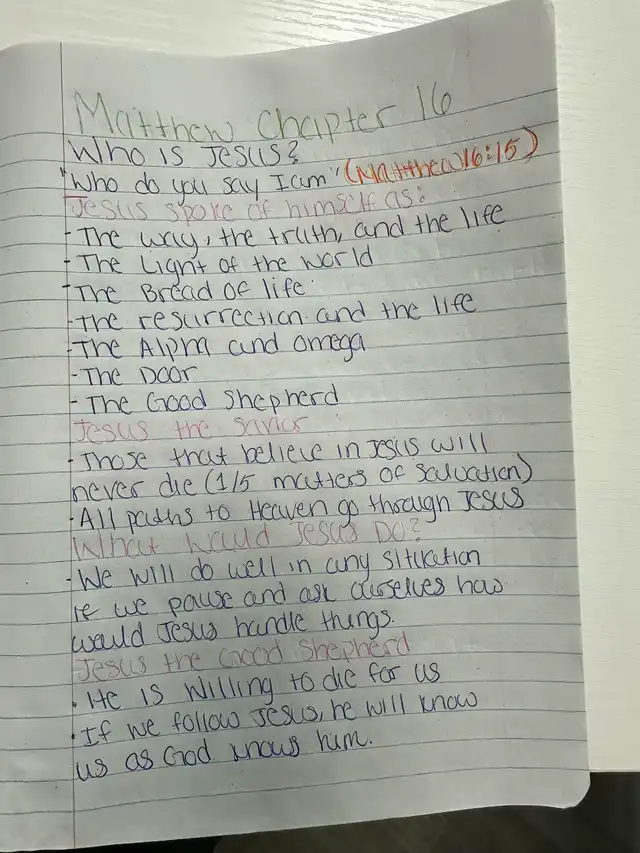 Matthew Chapter 16
Who is Jesus?
"Who do you say I am" (Matthew 16:15)
Jesus spoke of himself as:
- The way, the truth, and the life
- The Light of the World
- The Bread of life
- The resurrection and the life
- The Alpha and Omega
- The Door
- The Good Shepherd
Jesus the Savior
- Those that believe in Jesus will
never die (1/5 matters of salvation)
- All paths to Heaven go through Jesus
What Would Jesus Do?
- We will do well in any situation
if we pause and ask ourselves how
would Jesus handle things.
Jesus the Good Shepherd
• He is willing to die for us
• If we follow Jesus, he will know
us as God knows him.